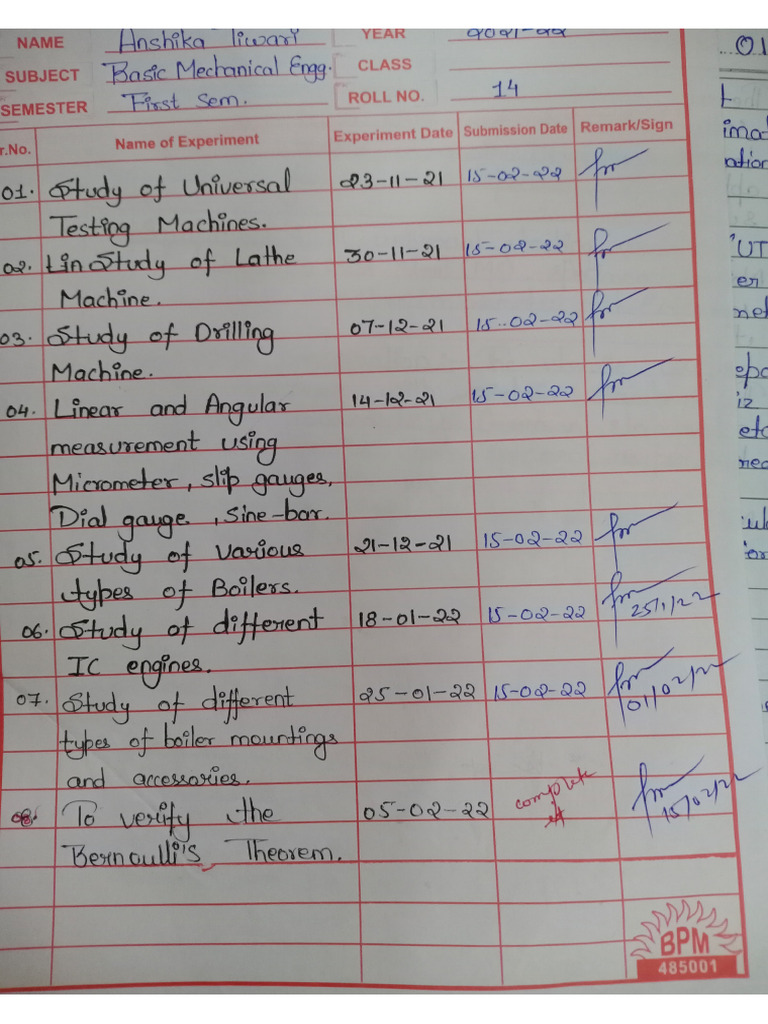 NAME Anshika Tiwari YEAR 2021-22
SUBJECT Basic Mechanical Engg. CLASS
SEMESTER First Sem. ROLL NO. 14
r.No. Name of Experiment Experiment Date Submission Date Remark/Sign
01. Study of Universal 23-11-21 15-02-22
Testing Machines.
02. Study of Lathe 30-11-21 15-02-22
Machine.
03. Study of Drilling 07-12-21 15-02-22
Machine.
04. Linear and Angular 14-12-21 15-02-22
measurement using
Micrometer, slip gauges,
Dial gauge, sine-bar.
05. Study of various 21-12-21 15-02-22
types of Boilers.
06. Study of different 18-01-22 15-02-22 25/1/22
IC engines.
07. Study of different 25-01-22 15-02-22 01/02/22
types of boiler mountings
and accessories.
08. To verify the 05-02-22 complete it 15/02/22
Bernoulli's Theorem.
BPM
485001